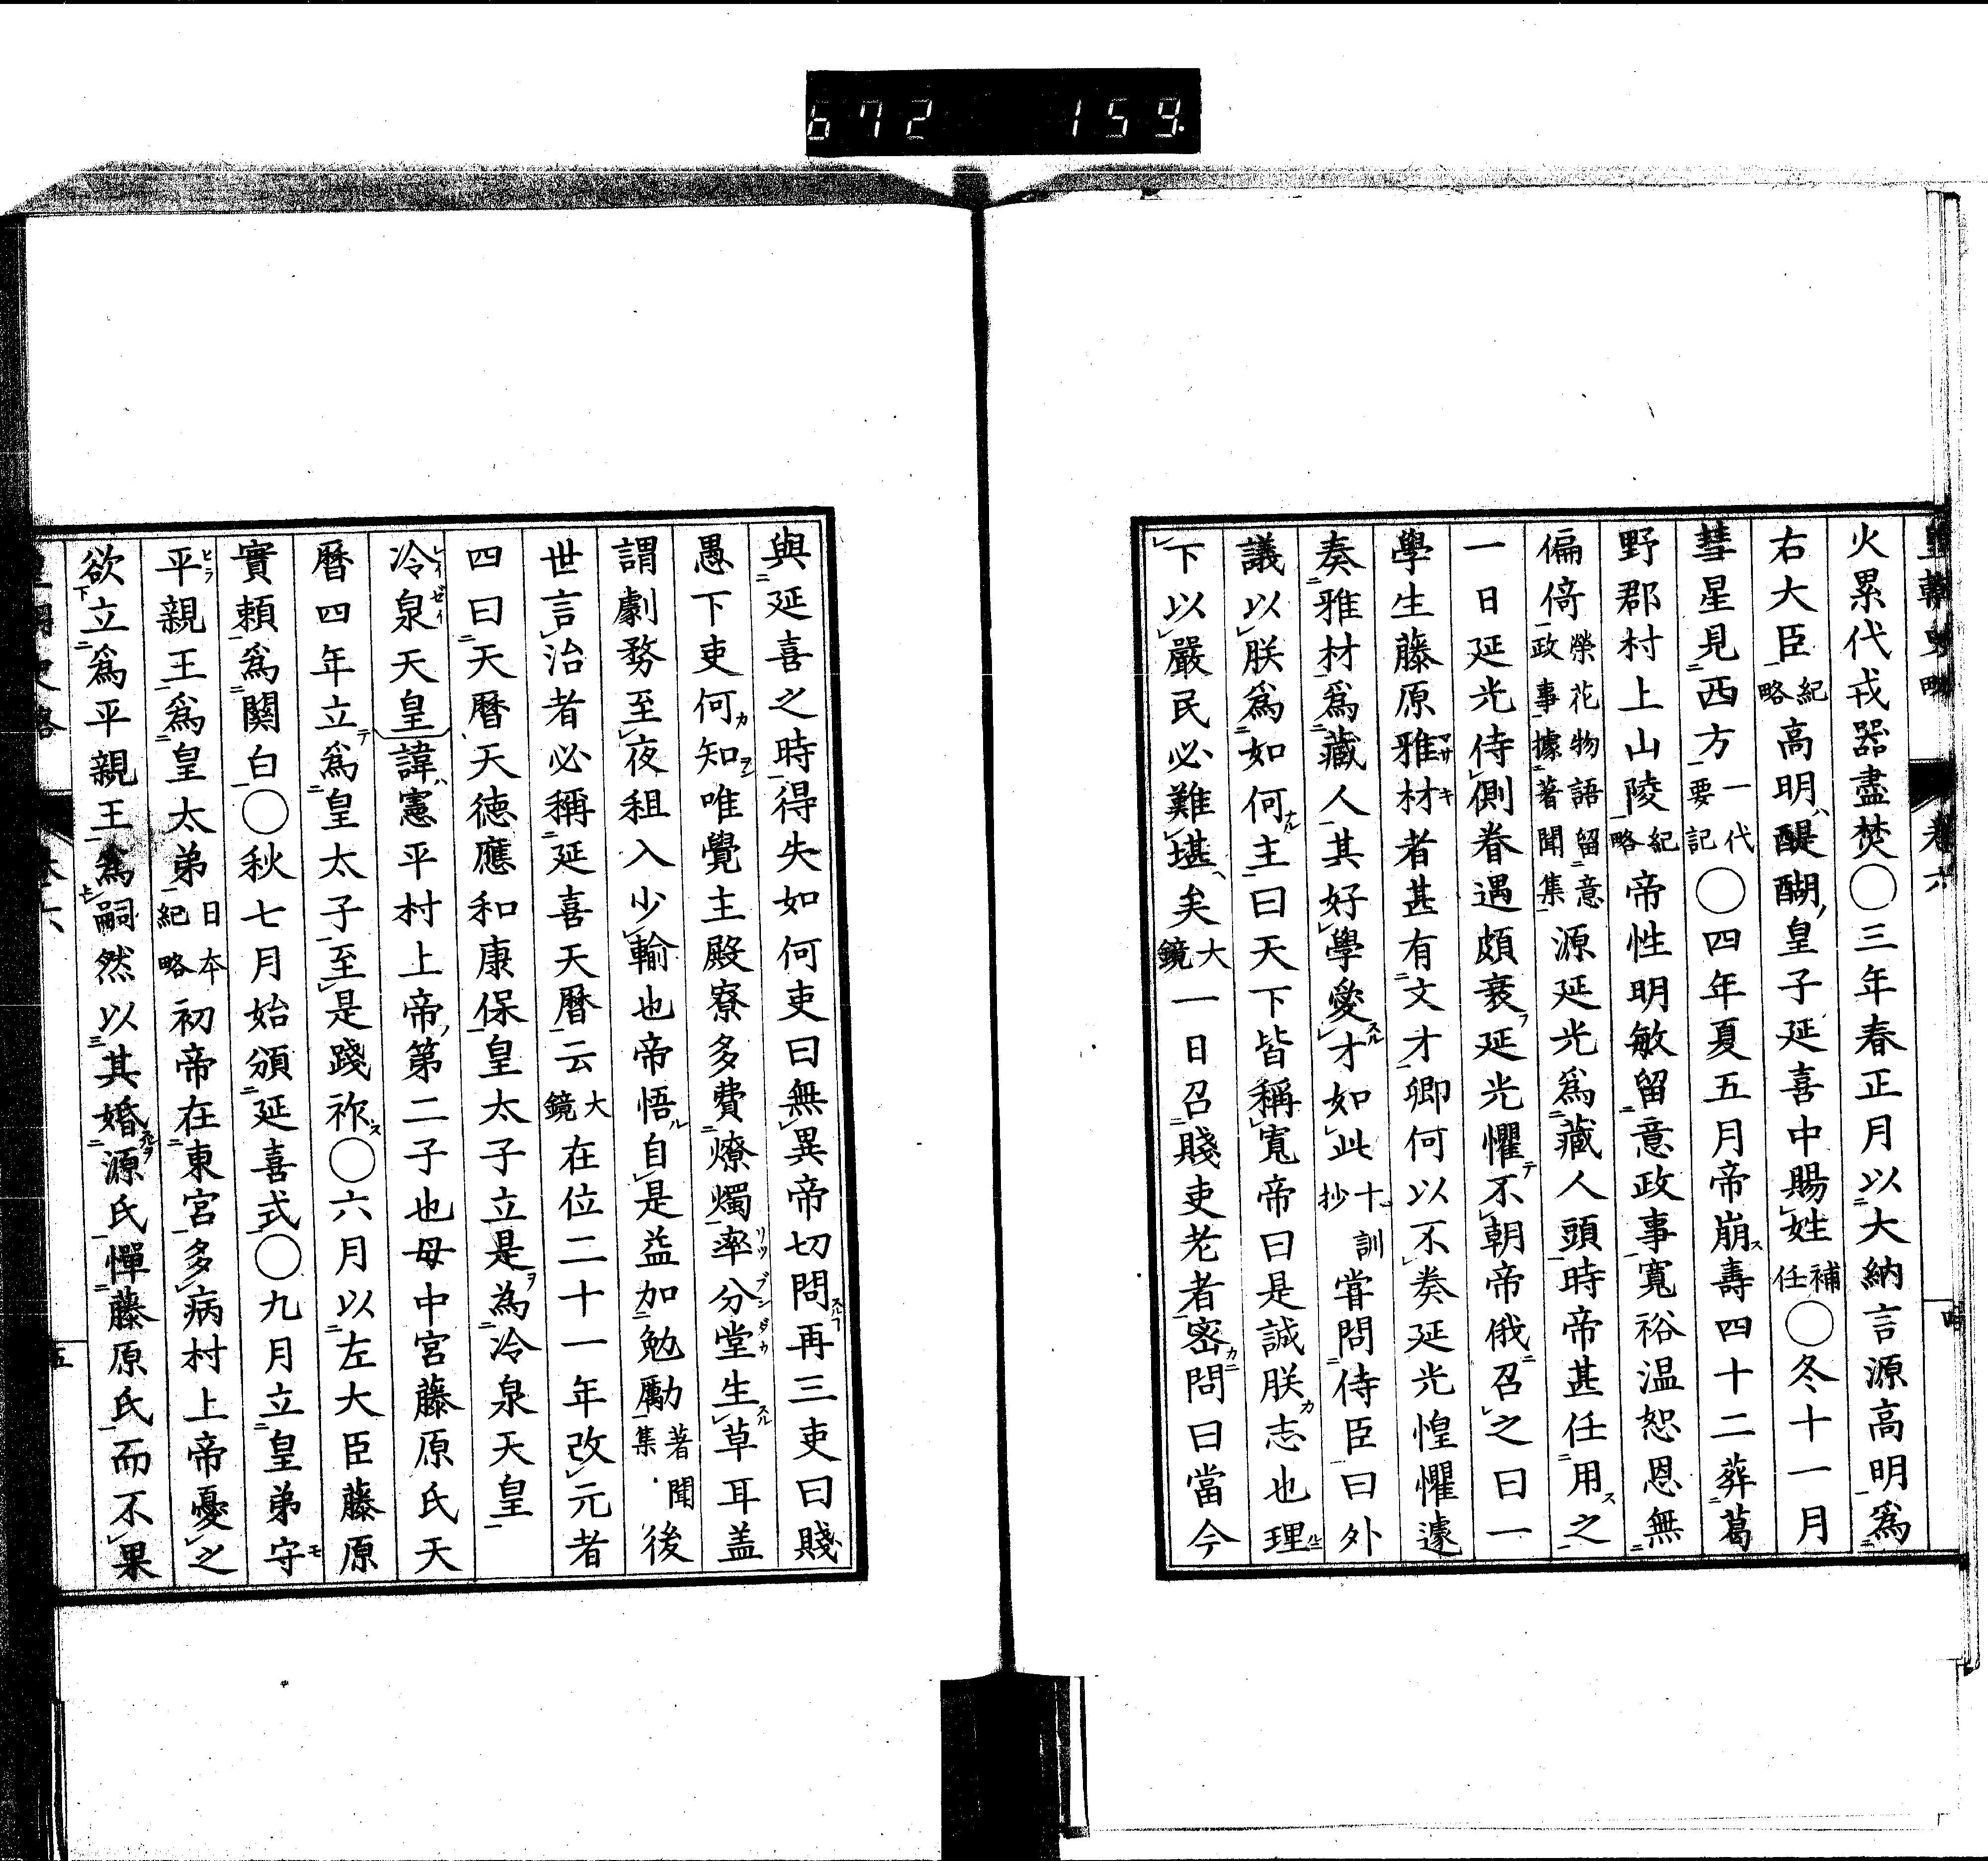 672 159.
皇朝史略 卷六
火累代戎器盡焚〇三年春正月以大納言源高明爲
右大臣紀略高明醍醐皇子延喜中賜姓補任〇冬十一月
彗星見西方一代要記〇四年夏五月帝崩壽四十二葬葛
野郡村上山陵紀略帝性明敏留意政事寬裕温恕恩無
偏倚榮花物語留意政事據著聞集源延光爲藏人頭時帝甚任用之
一日延光侍側眷遇頗衰延光懼不朝帝俄召之曰一
學生藤原雅材者甚有文才卿何以不奏延光惶懼遽
奏雅材爲藏人其好學愛才如此十訓抄嘗問侍臣曰外
議以朕爲如何主曰天下皆稱寬帝曰是誠朕志也理
下以嚴民必難堪矣大鏡一日召賤吏老者密問曰當今
與延喜之時得失如何吏曰無異帝切問再三吏曰賤
愚下吏何知唯覺主殿寮多費燎燭率分堂生草耳盖
謂劇務至夜租入少輸也帝悟自是益加勉勵著聞集後
世言治者必稱延喜天曆云大鏡在位二十一年改元者
四曰天曆天德應和康保皇太子立是為冷泉天皇
冷泉天皇諱憲平村上帝第二子也母中宮藤原氏天
曆四年立爲皇太子至是踐祚〇六月以左大臣藤原
實賴爲關白〇秋七月始頒延喜式〇九月立皇弟守
平親王爲皇太弟日本紀略初帝在東宮多病村上帝憂之
欲立爲平親王爲嗣然以其婚源氏憚藤原氏而不果
五